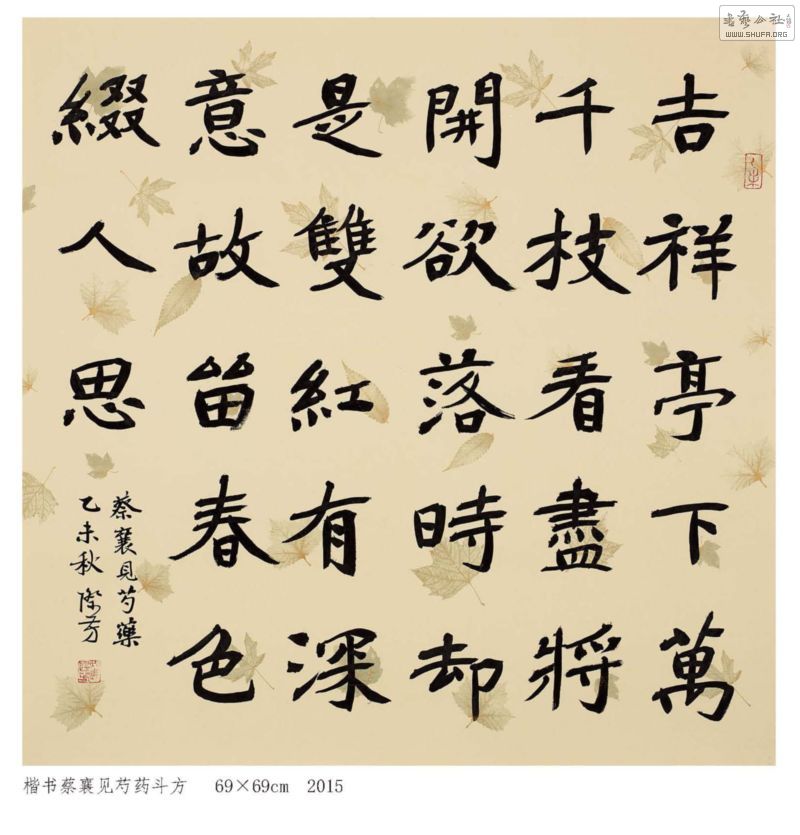 書藝公社
WWW.SHUFA.ORG
吉祥亭下萬
千枝看盡將
開欲落時却
是雙紅有深
意故留春色
綴人思
蔡襄見芍藥
乙未秋 芳
楷书蔡襄见芍药斗方 69×69cm 2015